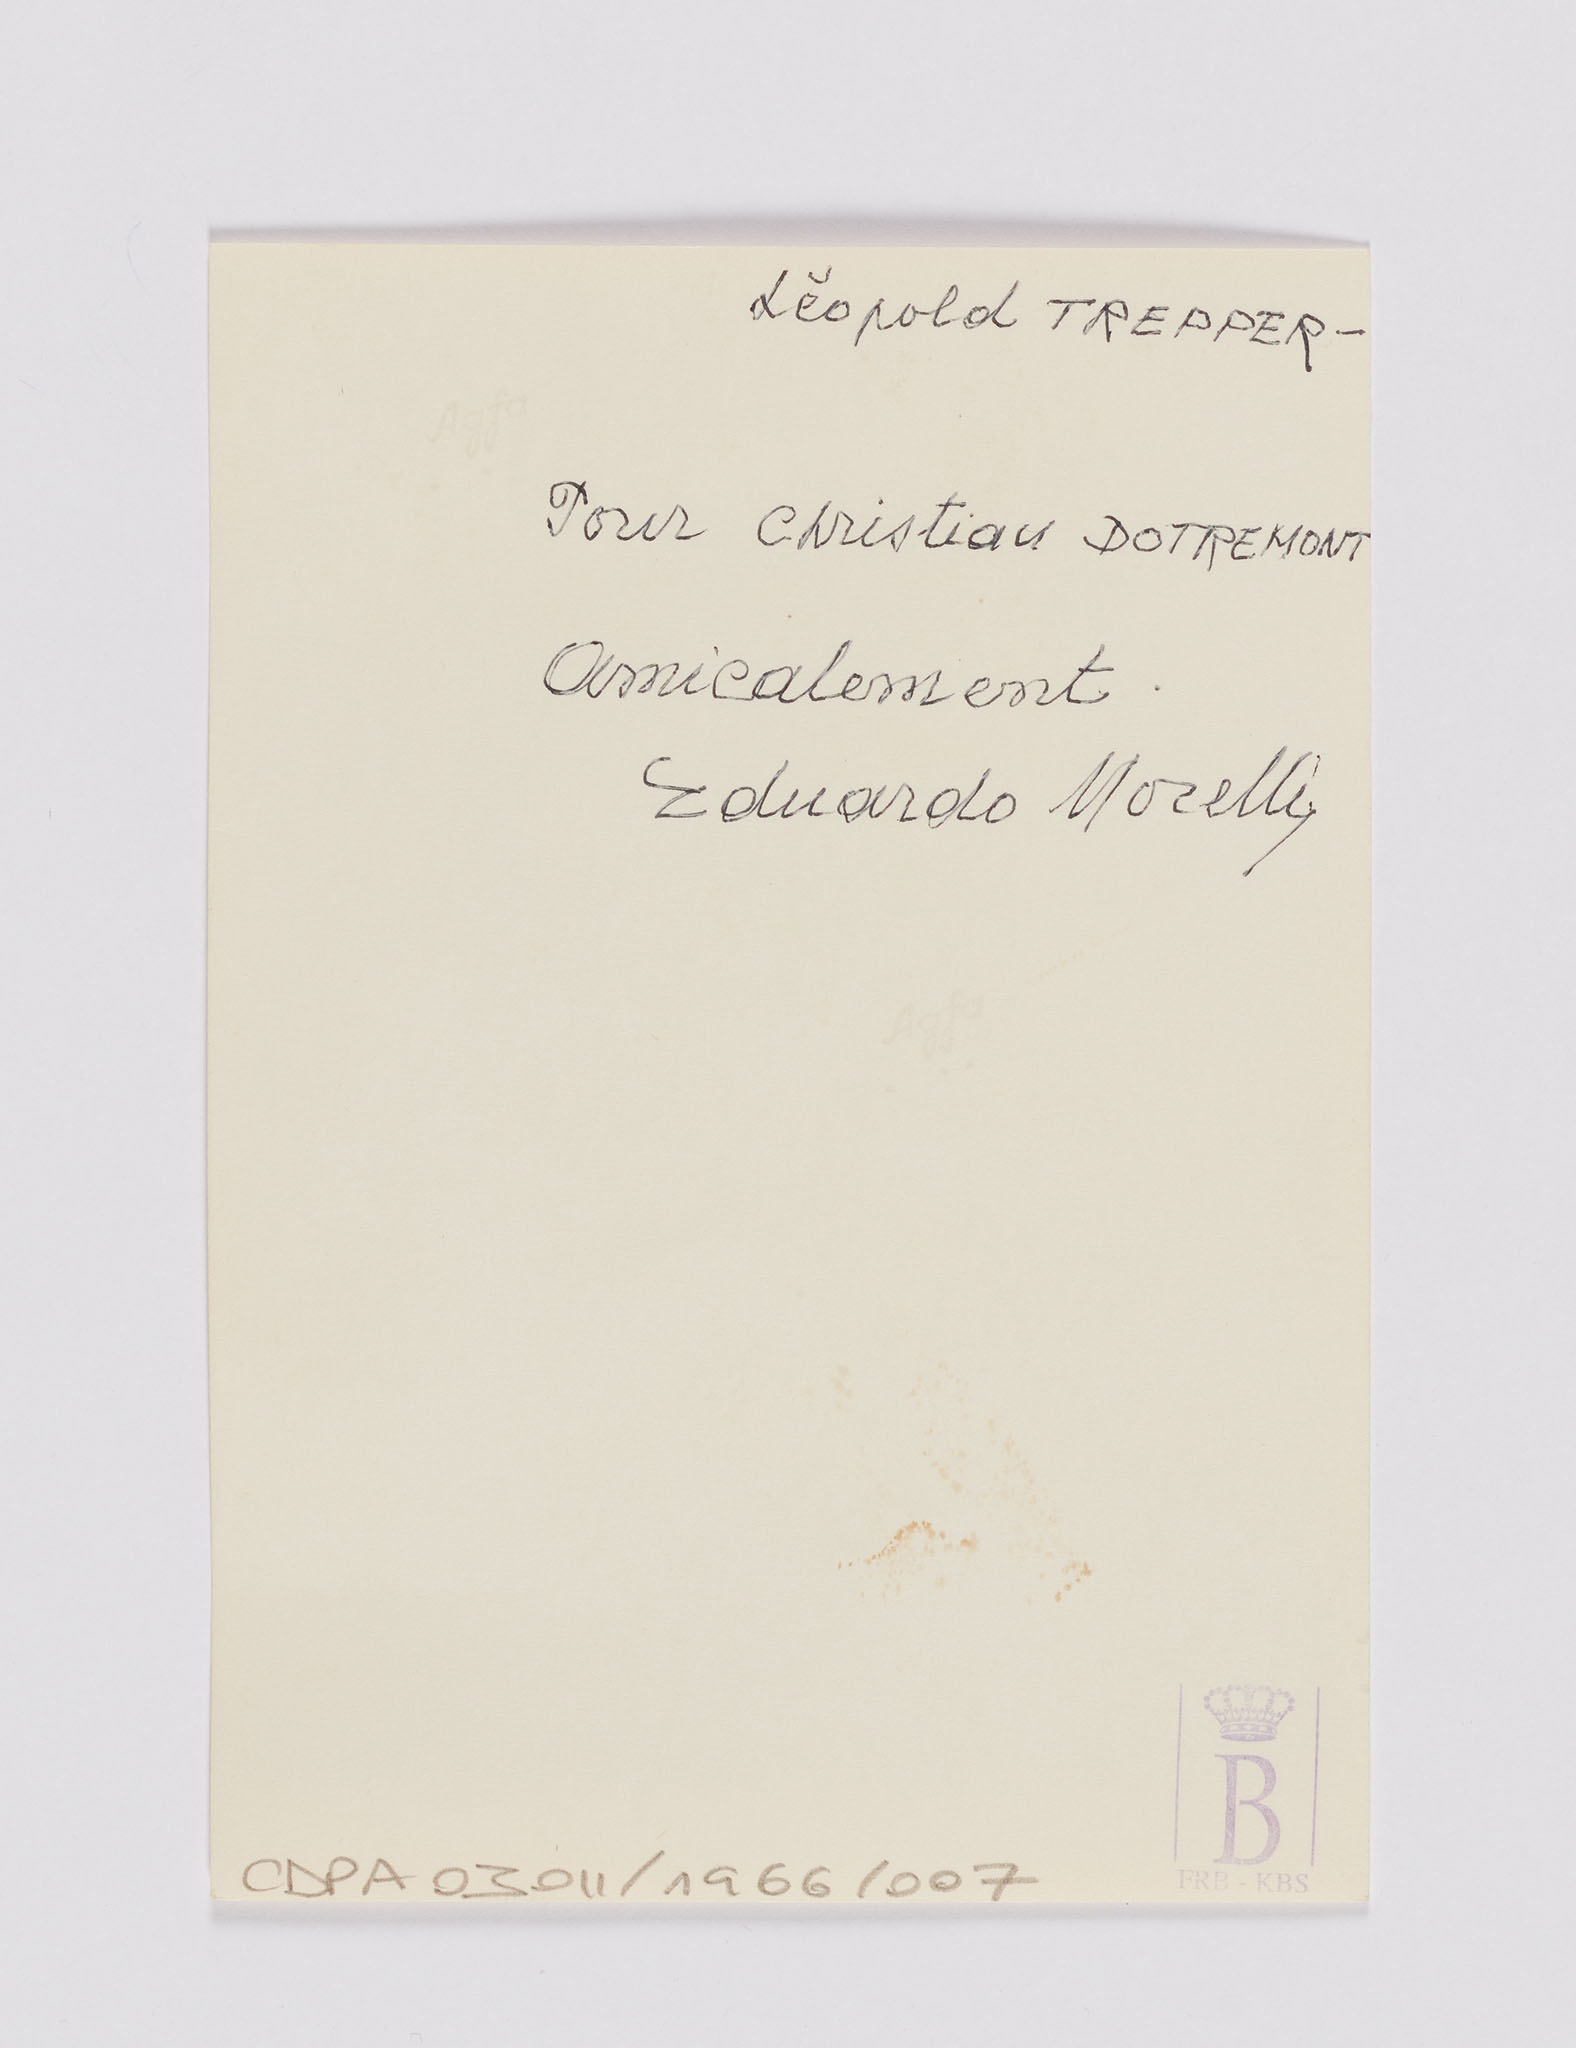 Léopold TREPPER-
Agfa
Pour Christian DOTREMONT
Amicalement.
Eduardo Morelli
Agfa
B
FRB - KBS
CDPA 03011/1966/007